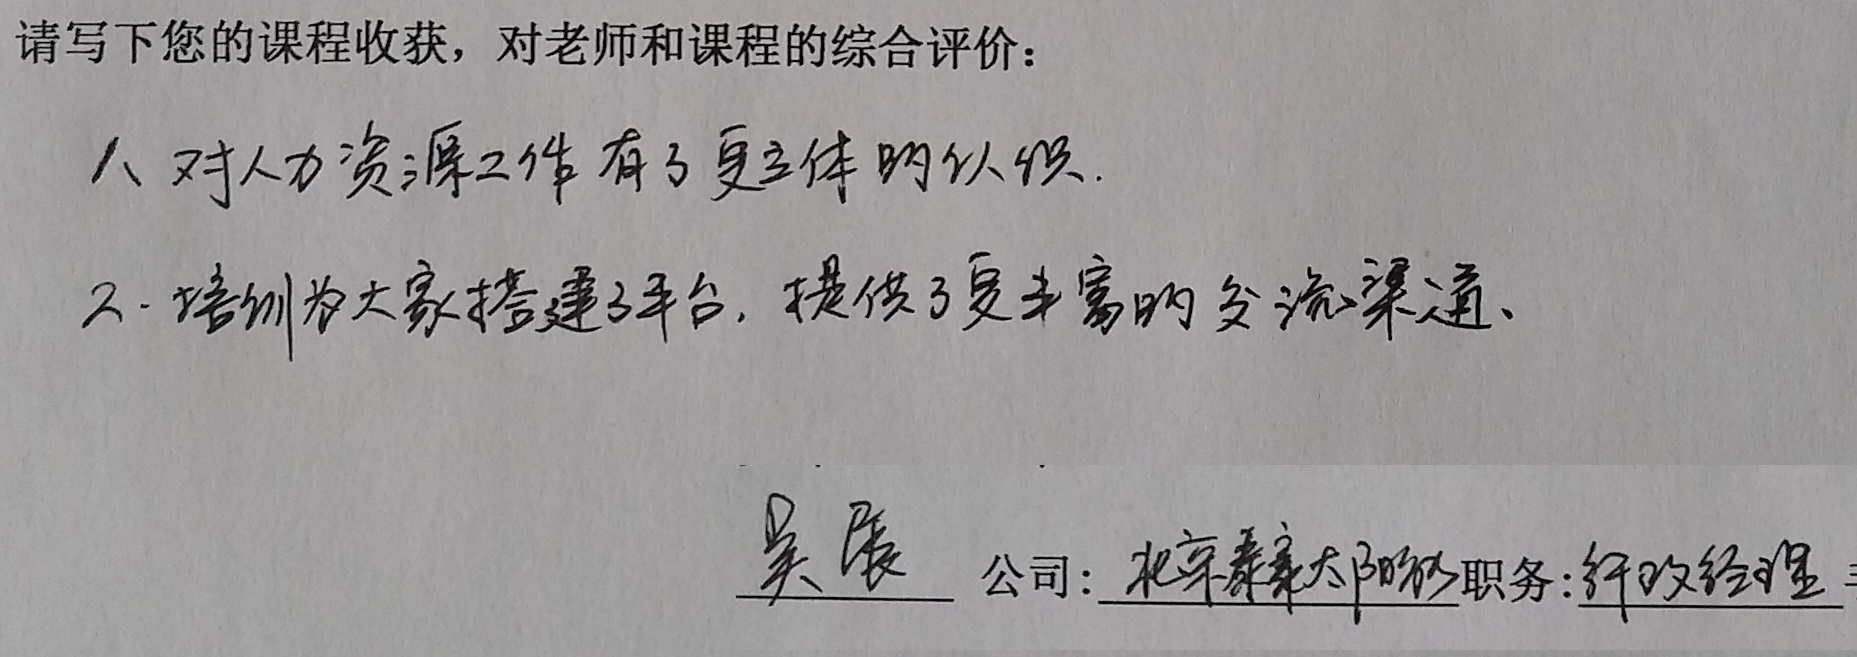 请写下您的课程收获，对老师和课程的综合评价：
1、对人力资源工作有了更立体的认识.
2.培训为大家搭建了平台,提供了更丰富的交流渠道、
吴展 公司：北京泰豪太阳能 职务：行政经理